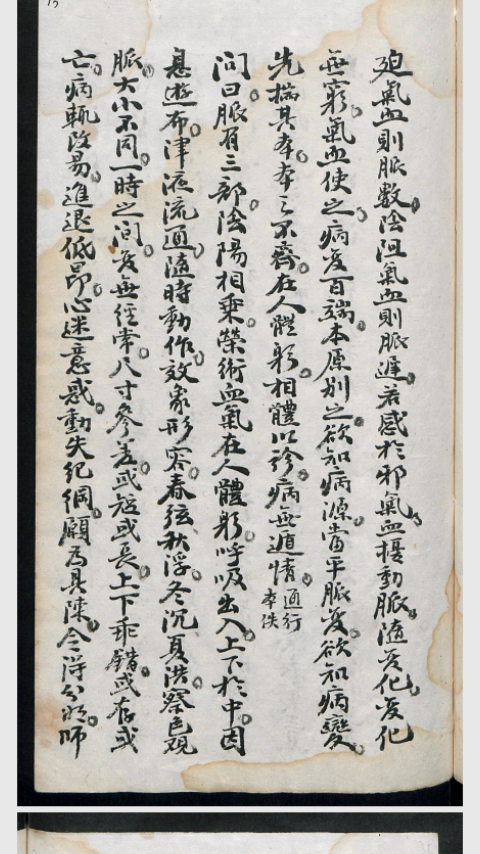 迫氣血則脈數陰阻氣血則脈遲若感於邪氣血擾動脈隨變化變化
無窮氣血使之病變百端本原別之欲知病源當平脈變欲知病變
先揣其本本之不齊在人體躬相體以診病無遁情通行本佚
問曰脈有三部陰陽相乘榮術血氣在人體躬呼吸出入上下於中因
息遊布津液流通隨時動作效象形容春弦秋浮冬沉夏洪察色观
脈大小不同一時之间变無经常尺寸參差或短或長上下乖錯或存或
亡病輒改易進退低昂心迷意惑動失紀綱願為具陳令得分明师